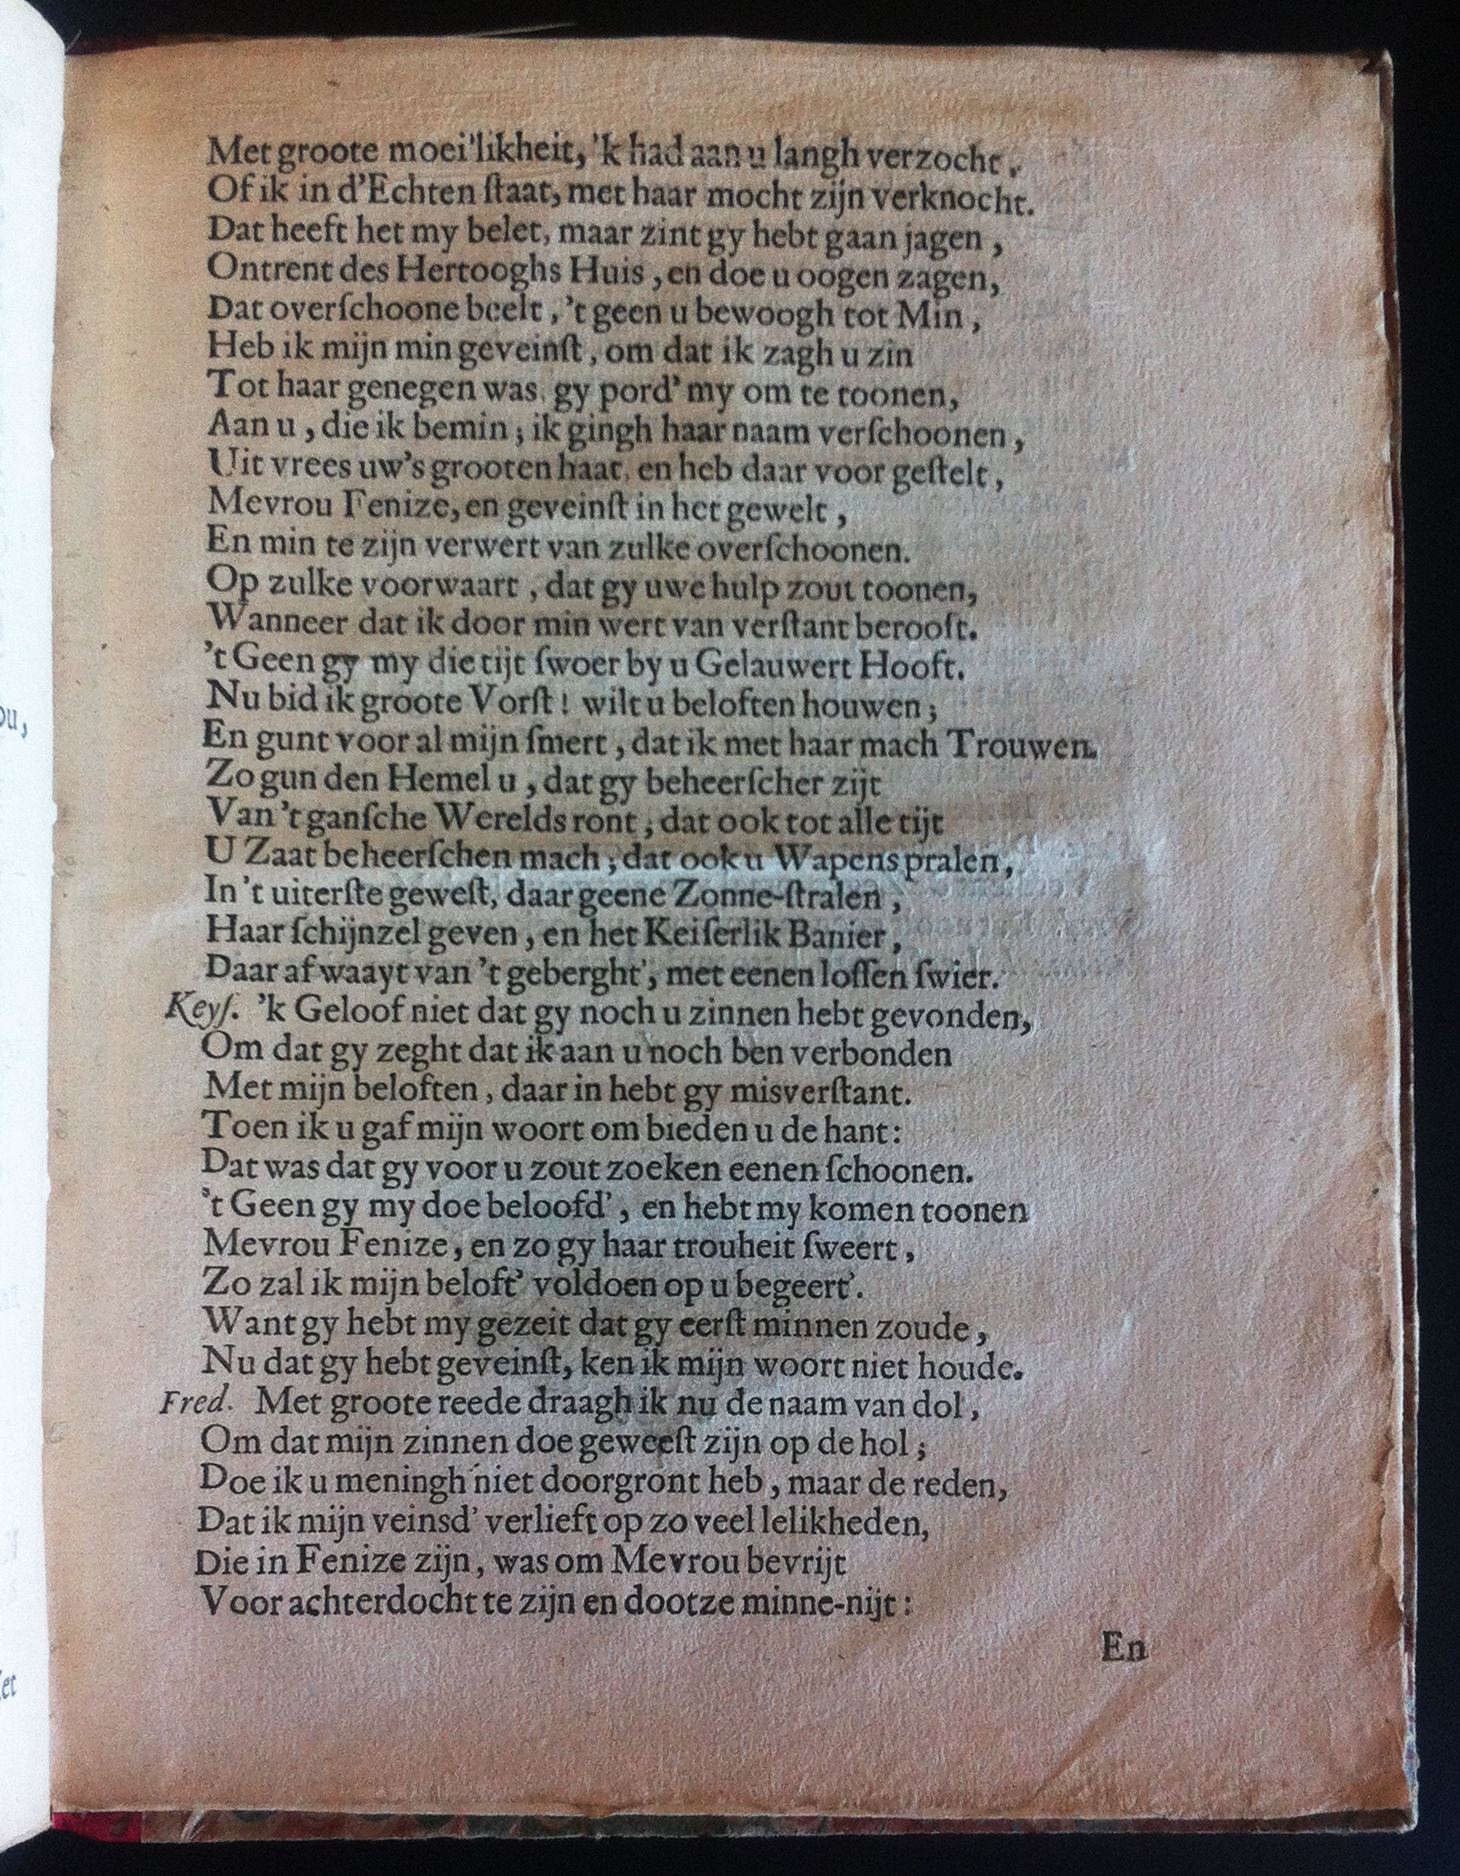 Met groote moei'likheit, 'k had aan u langh verzocht,
Of ik in d'Echten ſtaat, met haar mocht zijn verknocht.
Dat heeft het my belet, maar zint gy hebt gaan jagen,
Ontrent des Hertooghs Huis, en doe u oogen zagen,
Dat overſchoone beelt, 't geen u bewoogh tot Min,
Heb ik mijn min geveinſt, om dat ik zagh u zin
Tot haar genegen was, gy pord' my om te toonen,
Aan u, die ik bemin; ik gingh haar naam verſchoonen,
Uit vrees uw's grooten haat, en heb daar voor geſtelt,
Mevrou Fenize, en geveinſt in het gewelt,
En min te zijn verwert van zulke overſchoonen.
Op zulke voorwaart, dat gy uwe hulp zout toonen,
Wanneer dat ik door min wert van verſtant berooft.
't Geen gy my die tijt ſwoer by u Gelauwert Hooft.
Nu bid ik groote Vorſt! wilt u beloften houwen;
En gunt voor al mijn ſmert, dat ik met haar mach Trouwen.
Zo gun den Hemel u, dat gy beheerſcher zijt
Van 't ganſche Werelds ront, dat ook tot alle tijt
U Zaat beheerſchen mach; dat ook u Wapens pralen,
In 't uiterſte geweſt, daar geene Zonne-ſtralen,
Haar ſchijnzel geven, en het Keiſerlik Banier,
Daar af waayt van 't geberght', met eenen loſſen ſwier.
Keyſ. 'k Geloof niet dat gy noch u zinnen hebt gevonden,
Om dat gy zeght dat ik aan u noch ben verbonden
Met mijn beloften, daar in hebt gy misverſtant.
Toen ik u gaf mijn woort om bieden u de hant:
Dat was dat gy voor u zout zoeken eenen ſchoonen.
't Geen gy my doe beloofd', en hebt my komen toonen
Mevrou Fenize, en zo gy haar trouheit ſweert,
Zo zal ik mijn beloft' voldoen op u begeert'.
Want gy hebt my gezeit dat gy eerſt minnen zoude,
Nu dat gy hebt geveinſt, ken ik mijn woort niet houde.
Fred. Met groote reede draagh ik nu de naam van dol,
Om dat mijn zinnen doe geweeſt zijn op de hol;
Doe ik u meningh niet doorgront heb, maar de reden,
Dat ik mijn veinsd' verlieft op zo veel lelikheden,
Die in Fenize zijn, was om Mevrou bevrijt
Voor achterdocht te zijn en dootze minne-nijt:
En